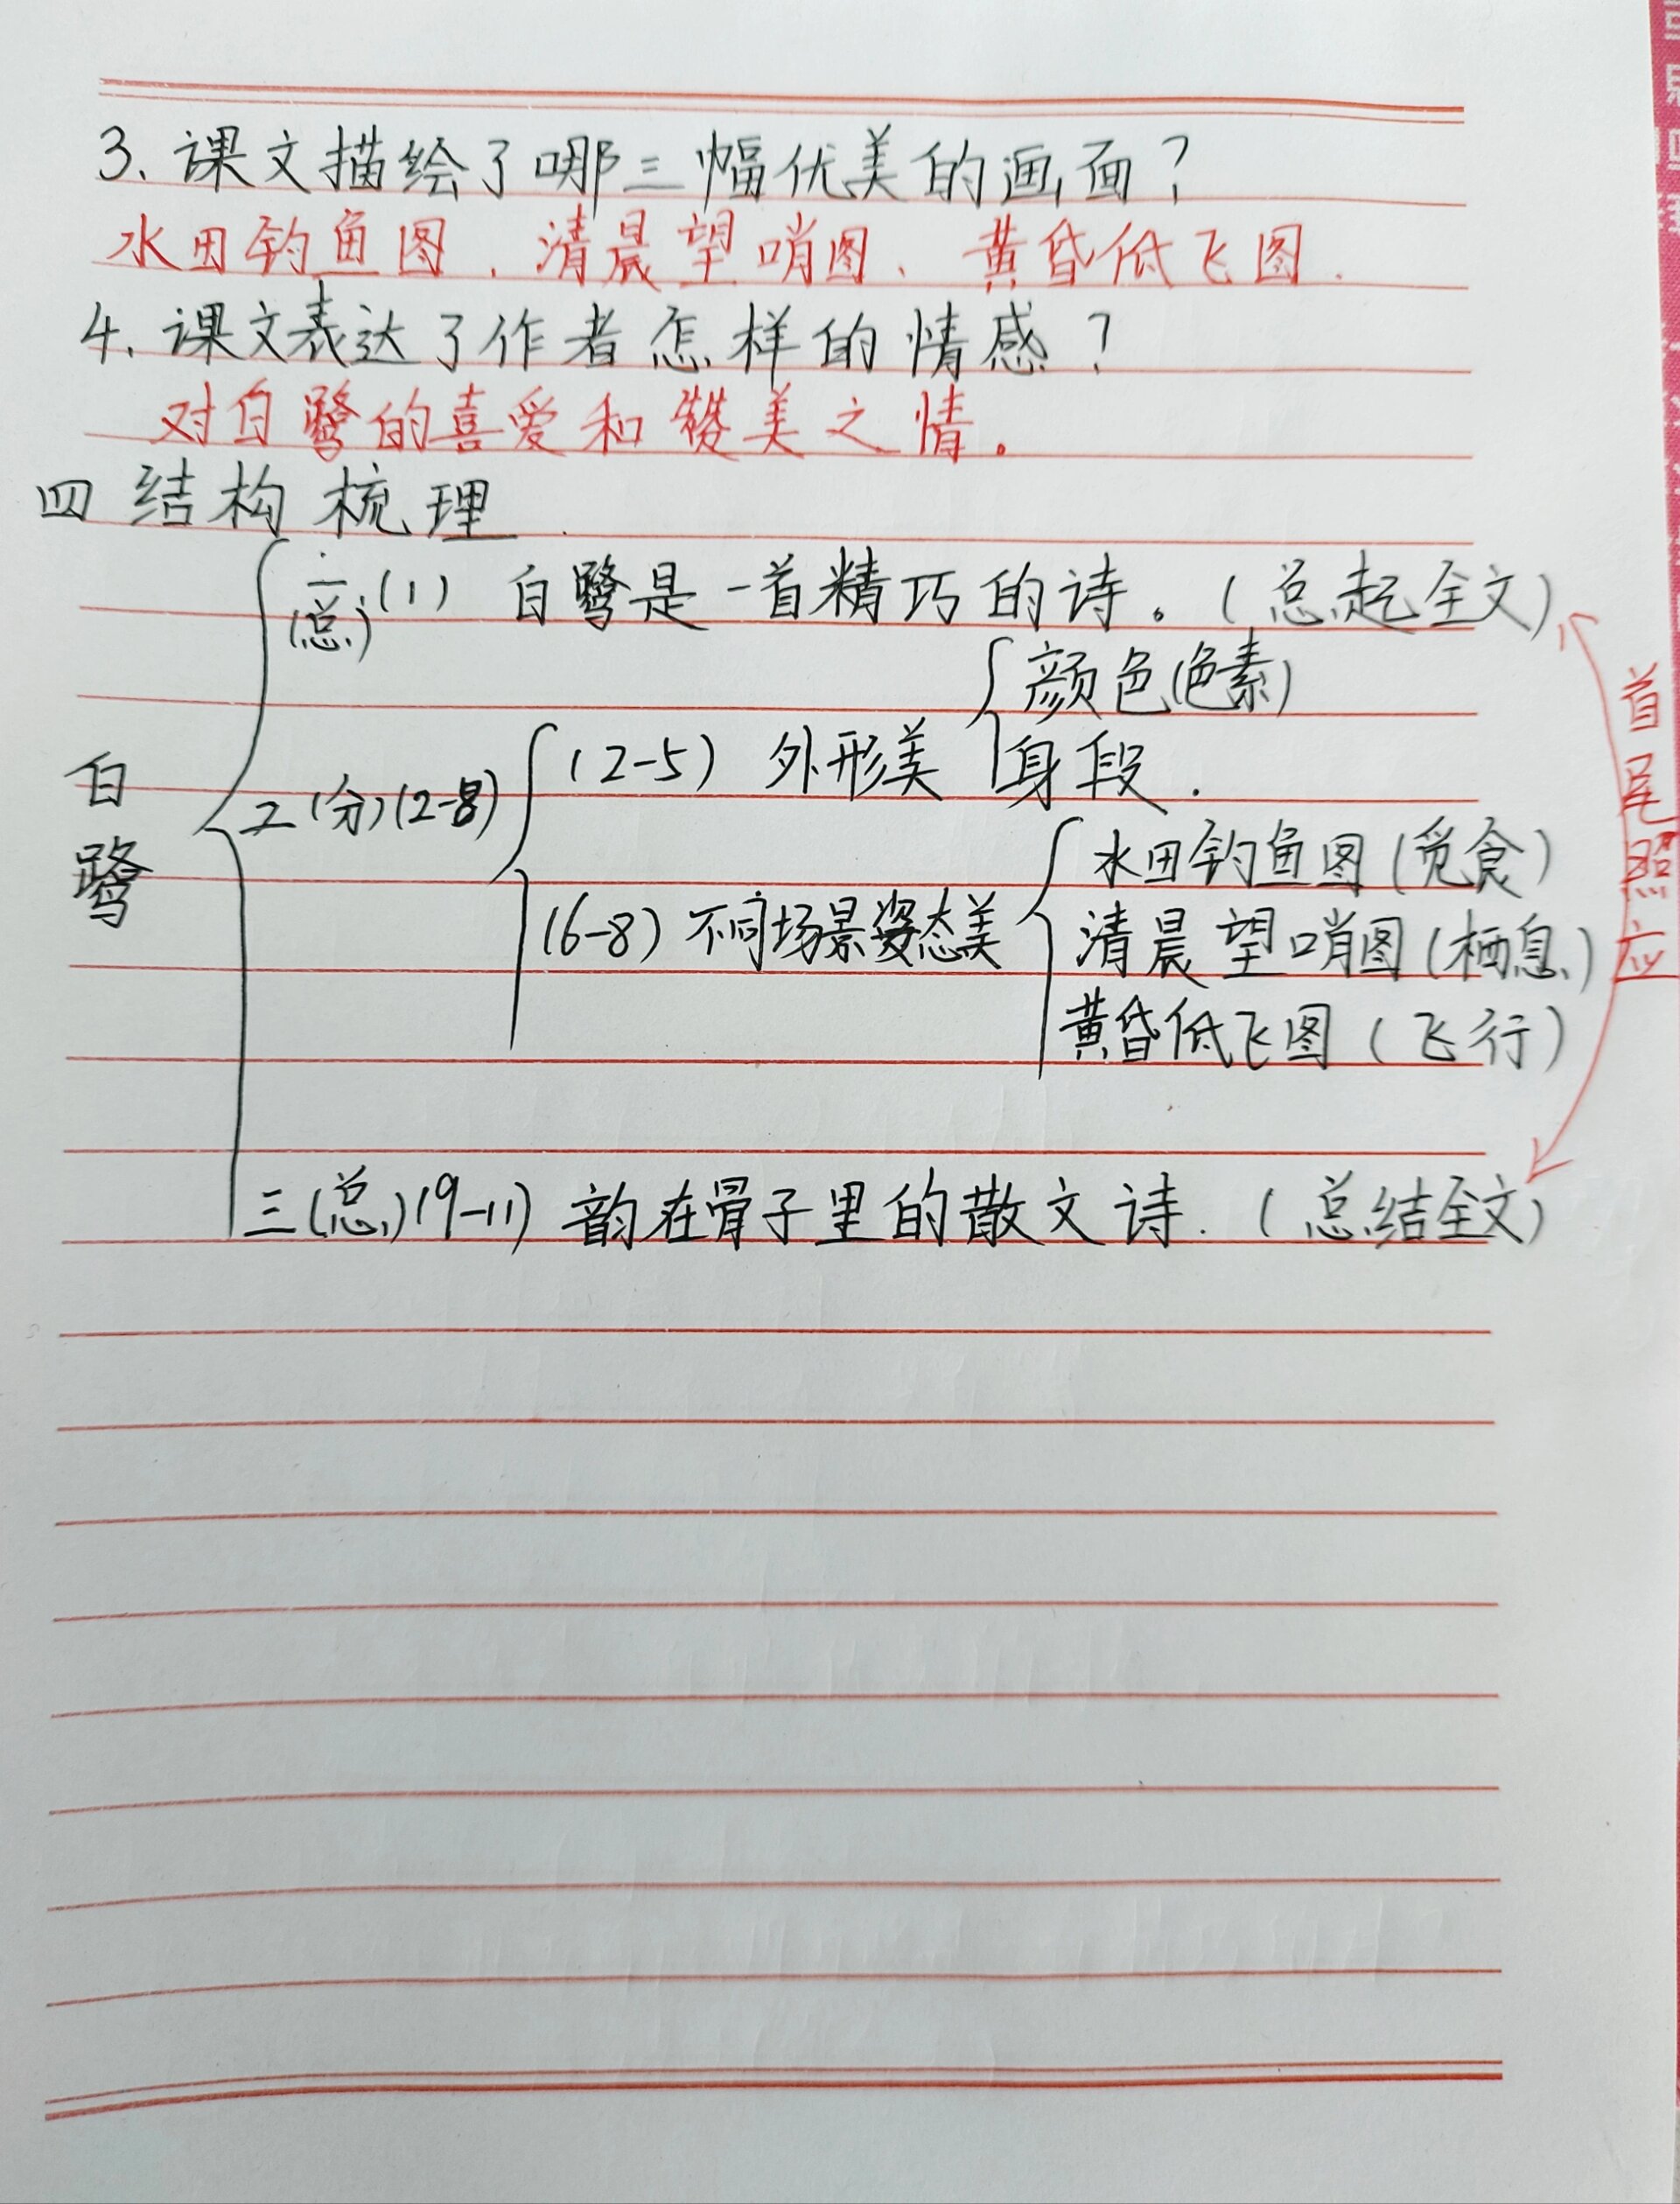 3. 课文描绘了哪三幅优美的画面？
水田钓鱼图、清晨望哨图、黄昏低飞图.
4. 课文表达了作者怎样的情感？
对白鹭的喜爱和赞美之情。
四 结构梳理
一(总)(1) 白鹭是一首精巧的诗。(总起全文)
颜色(色素)
(2-5) 外形美
身段.
白鹭
二(分)(2-8)
水田钓鱼图(觅食)
(6-8) 不同场景姿态美
清晨望哨图(栖息)
黄昏低飞图(飞行)
三(总)(9-11) 韵在骨子里的散文诗.(总结全文)
首尾照应